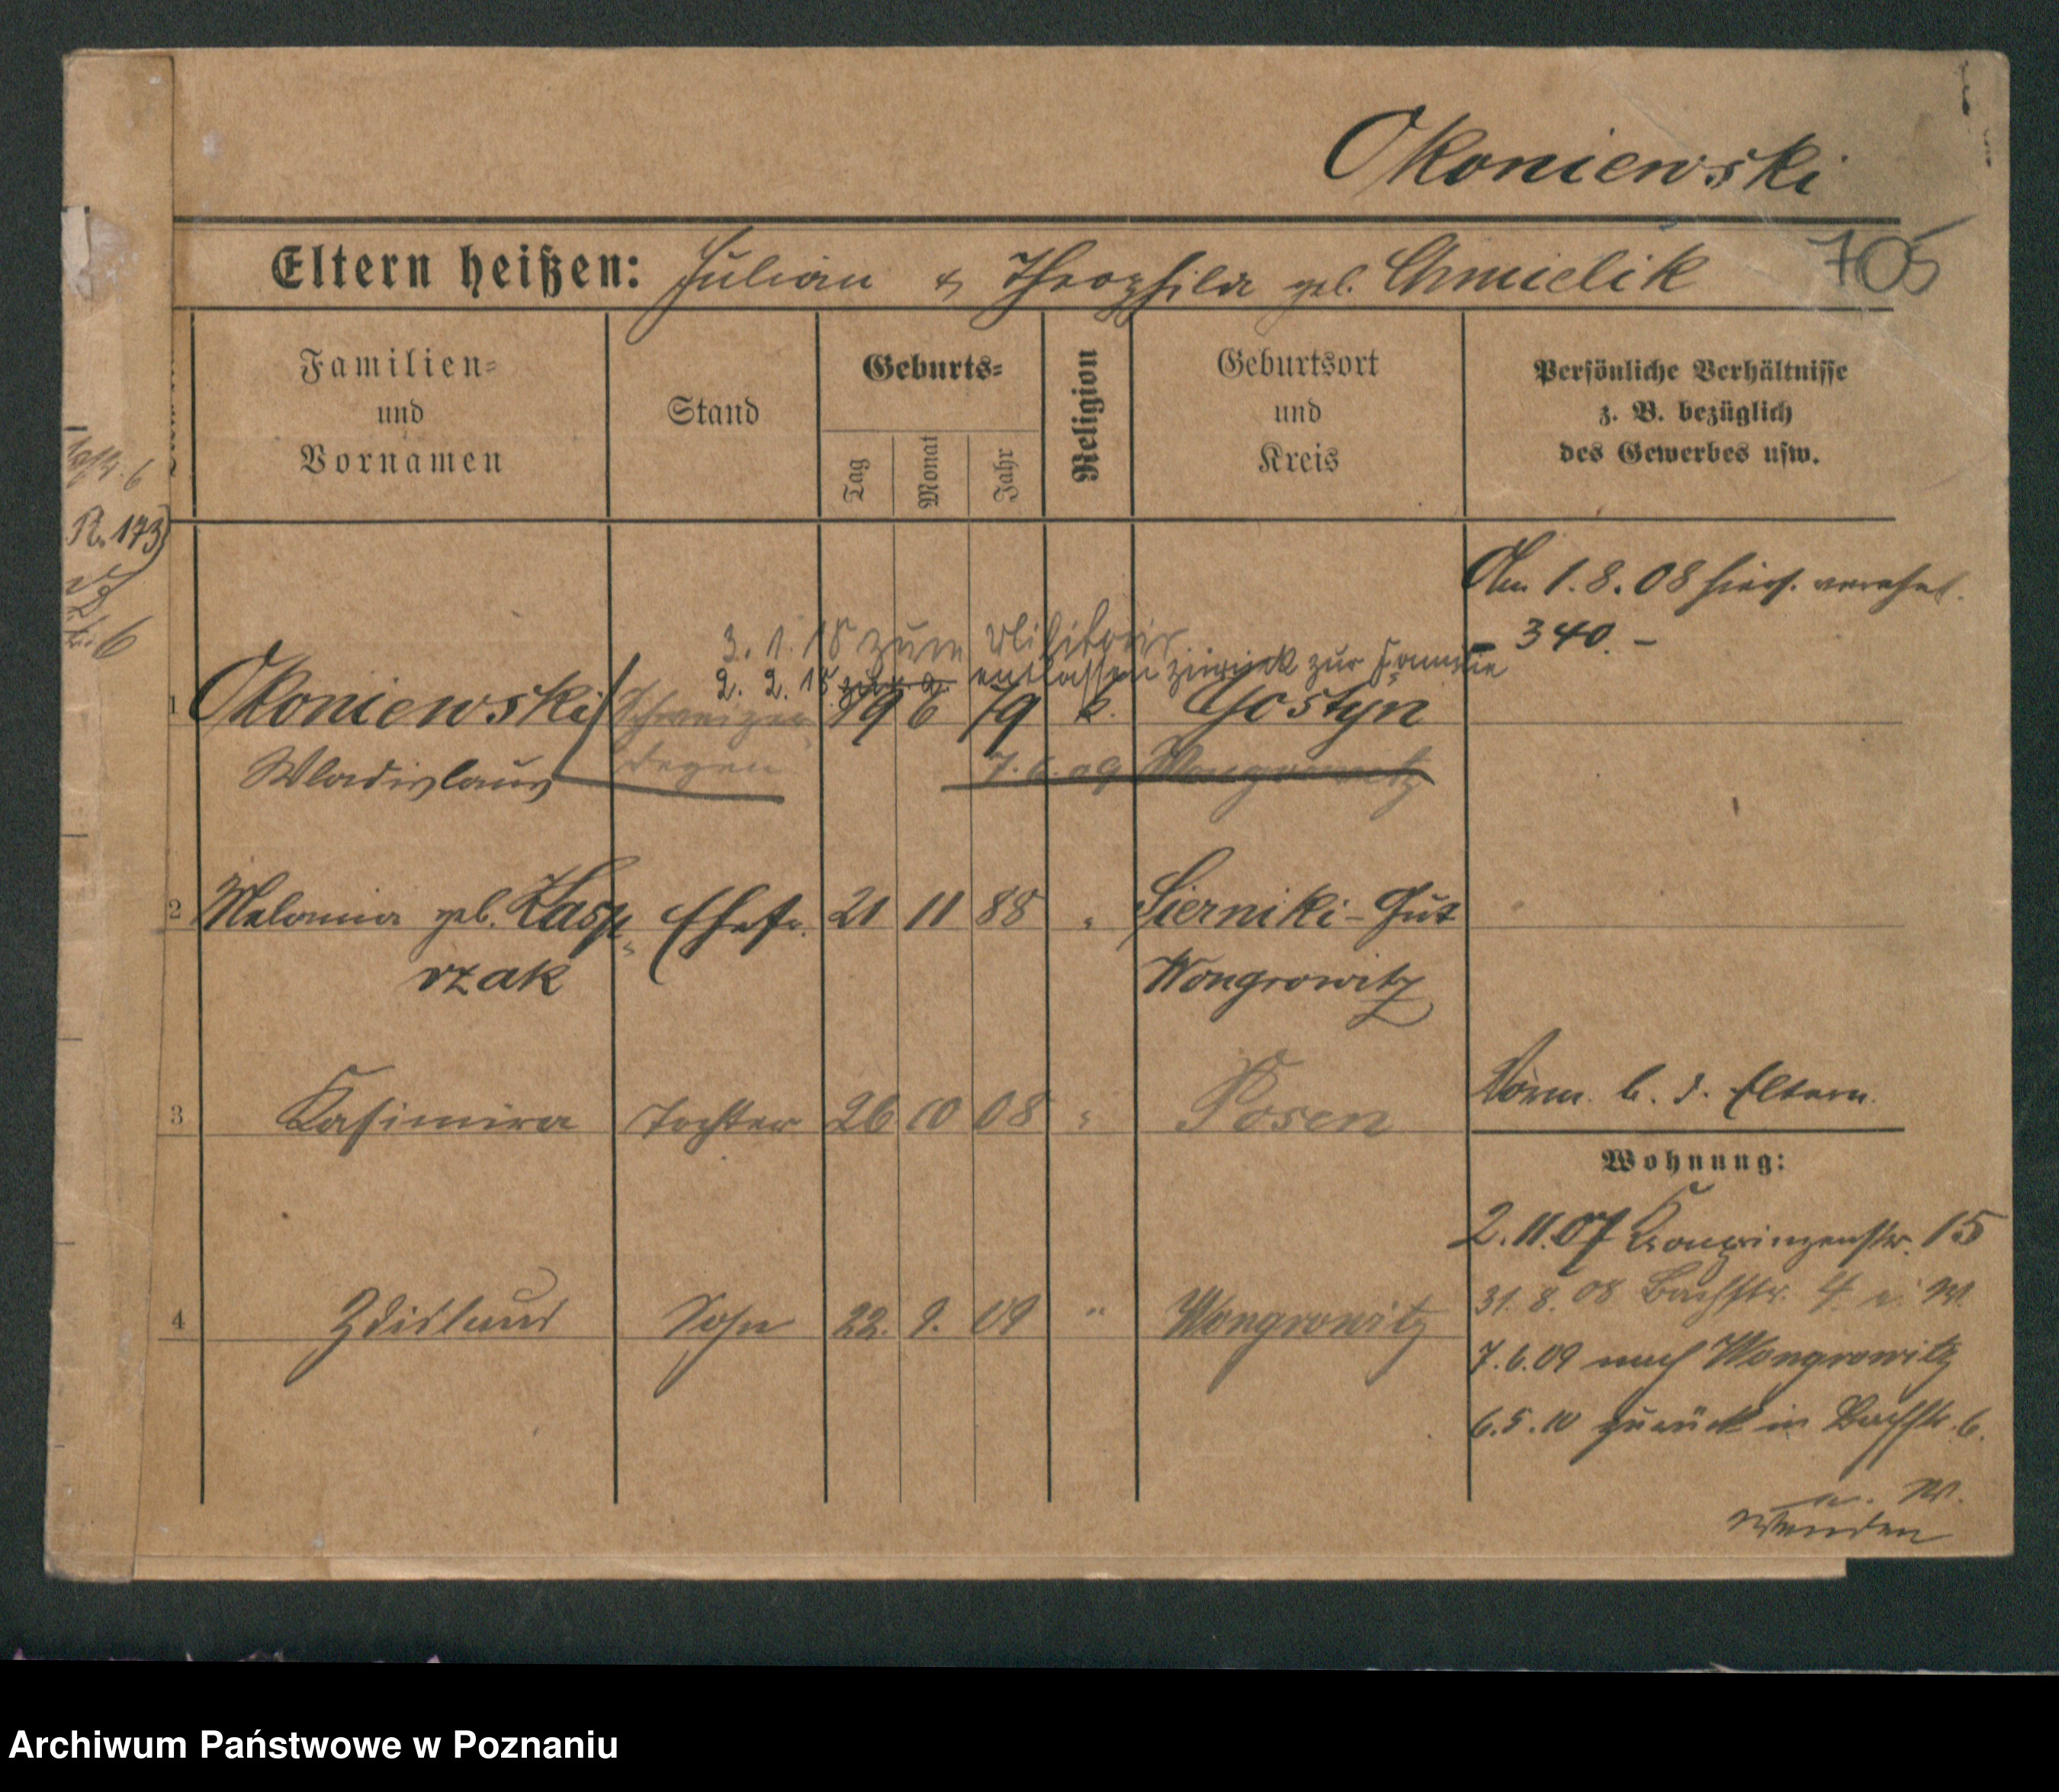 Okoniewski
Eltern heißen: Julian & Theophila geb. Chmielik
705
Familien-
und
Vornamen
Stand
Geburts-
Tag
Monat
Jahr
Religion
Geburtsort
und
Kreis
Persönliche Verhältnisse
z. B. bezüglich
des Gewerbes usw.
Am 1.8.08 hiers. verehel.
340.-
3.1.15 zum Militair
2.2.15 entlassen zurück zur Familie
1 Okoniewski 19 6 79 k. Gostyn
Wladislaus 7.6.09 Wongrowitz
2 Melania geb. Kasp- Ehefr. 21 11 88 " Sierniki-Gut
rzak Wongrowitz
3 Kasimira Tochter 26 10 08 " Posen
Vorm. b. d. Eltern.
Wohnung:
2.11.07 Kronprinzenstr. 15
31.8.08 Bachstr. 4
4 Zdislaus Sohn 22. 9. 09 " Wongrowitz
7.6.09 nach Wongrowitz
6.5.10 zurück in Bachstr. 6.
wenden
R. 173
6
Archiwum Państwowe w Poznaniu